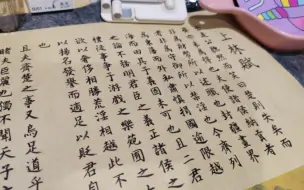 上林賦
然而笑曰楚則失矣而
也夫使諸侯納貢者
所以述職也封疆畫界者
非為守禦所以禁淫也今齊列
為東藩而外私肅慎捐國逾限越
海而田其於義固未可也且二君
之論不務明君臣之義正諸侯之
禮徒事爭於游戲之樂苑囿之大
欲以奢侈相勝荒淫相越此不可
以揚名發譽而適足以貶君自
也
且夫齊楚之事又烏足道乎
睹夫巨麗也獨不聞天子之